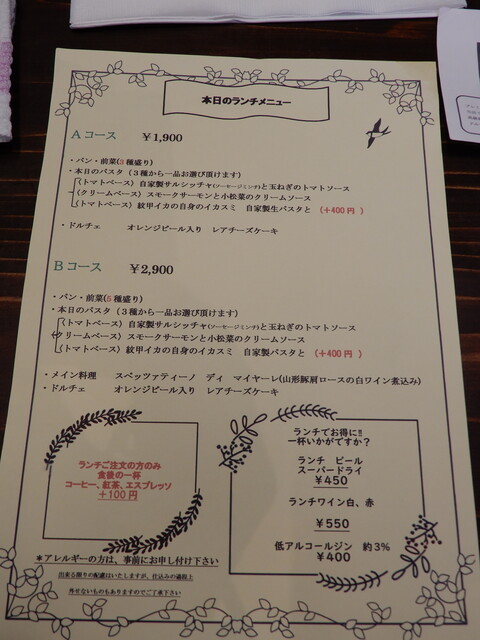 本日のランチメニュー
Aコース ￥1,900
・パン・前菜(3種盛り)
・本日のパスタ（3種から一品お選び頂けます）
(トマトベース) 自家製サルシッチャ(ソーセージミンチ)と玉ねぎのトマトソース
(クリームベース) スモークサーモンと小松菜のクリームソース
(トマトベース) 紋甲イカの自身のイカスミ 自家製生パスタと (+400円)
・ドルチェ オレンジピール入り レアチーズケーキ
Bコース ￥2,900
・パン・前菜(5種盛り)
・本日のパスタ（3種から一品お選び頂けます）
(トマトベース) 自家製サルシッチャ(ソーセージミンチ)と玉ねぎのトマトソース
(クリームベース) スモークサーモンと小松菜のクリームソース
(トマトベース) 紋甲イカの自身のイカスミ 自家製パスタと (+400円)
・メイン料理 スペッツァティーノ ディ マイヤーレ(山形豚肩ロースの白ワイン煮込み)
・ドルチェ オレンジピール入り レアチーズケーキ
ランチご注文の方のみ
食後の一杯
コーヒー、紅茶、エスプレッソ
+100円
ランチでお得に‼
一杯いかがですか？
ランチ ビール
スーパードライ
￥450
ランチワイン白、赤
￥550
低アルコールジン 約3%
￥400
*アレルギーの方は、事前にお申し付け下さい
出来る限りの配慮はいたしますが、仕込みの過程上
外せないものもありますのでご了承下さい